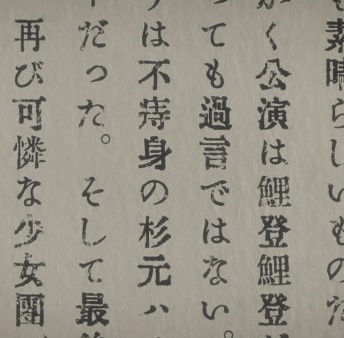 素晴らしいものだ
く公演は鯉登鯉登
っても過言ではない。
は不痔身の杉元ハ
だった。そして最
再び可憐な少女團